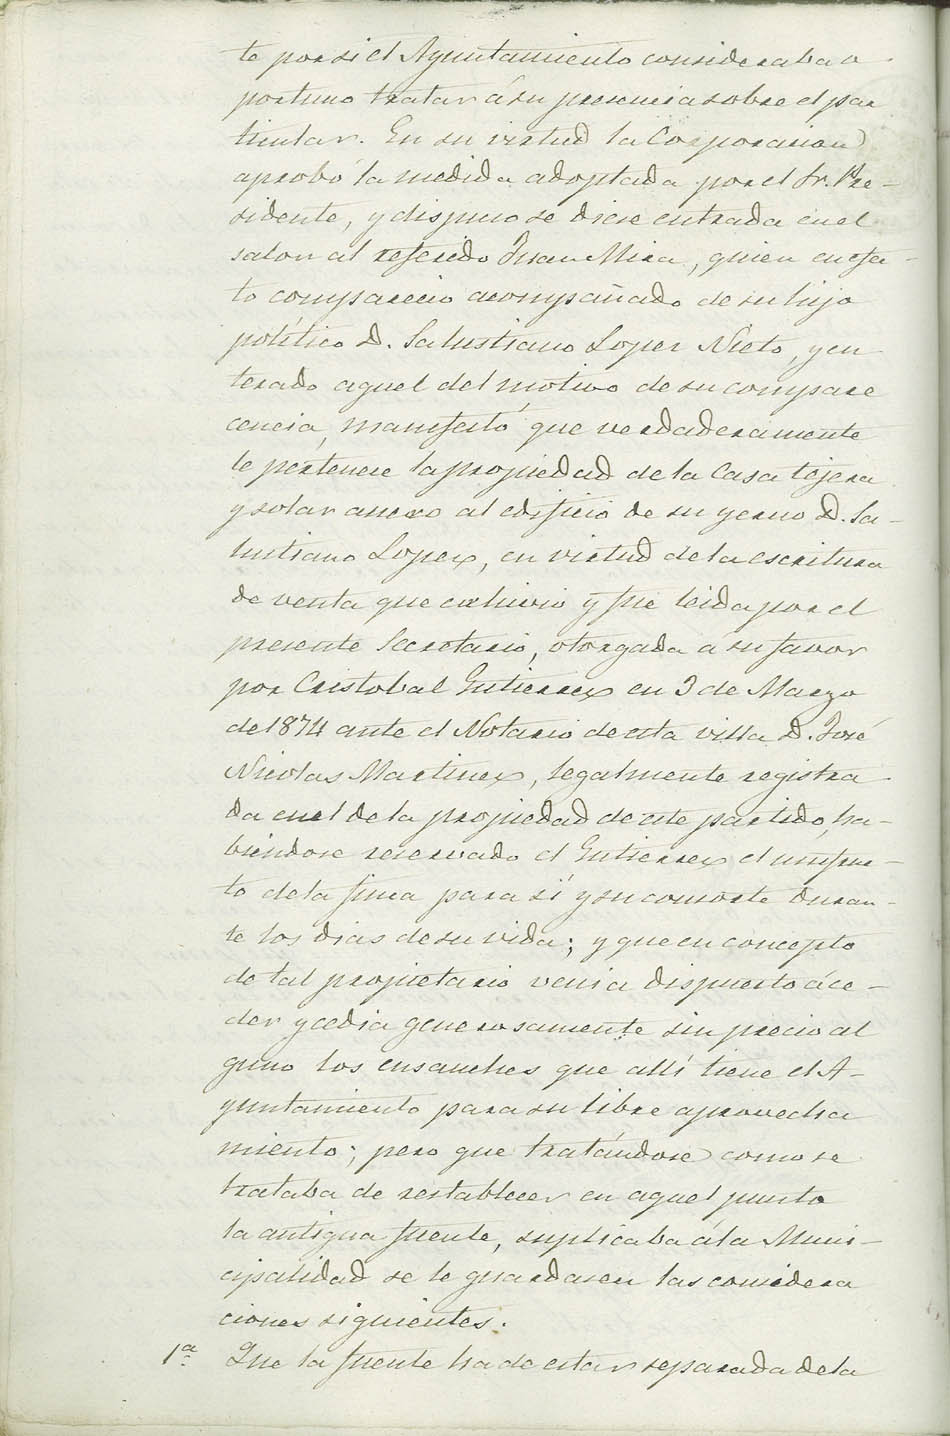 te por si el Ayuntamiento consideraba o
portuno tratar á su presencia sobre el par
ticular. En su virtud la Corporacion
aprobó la medida adoptada por el Sr. Pre-
sidente, y dispuso se diese entrada en el
salon al referido Juan Mira, quien en efec-
to comparecio acompañado de su hijo
político D. Salustiano Lopez Nieto, y en
terado aquel del motivo de su compare
cencia, manifestó que verdaderamente
le pertenece la propiedad de la Casa tejera
y solar anexo al edificio de su yerno D. Sa-
lustiano Lopez, en virtud de la escritura
de venta que exhivio y fue leida por el
presente Secretario, otorgada á su favor
por Cristobal Gutierrez en 3 de Marzo
de 1874 ante el Notario de esta villa D. José
Nicolas Martinez, legalmente registra
da en el de la propiedad de este partido, ha-
biendose reservado el Gutierrez el usufruc-
to de la finca para sí y su consorte duran-
te los dias de su vida; y que en concepto
de tal propietario venia dispuesto á ce-
der y cedia generosamente sin precio al
guno los ensanches que allí tiene el A-
yuntamiento para su libre aprovecha
miento; pero que tratándose como se
trataba de restablecer en aquel punto
la antigua fuente, suplicaba á la Muni-
cipalidad se le guardasen las considera
ciones siguientes.
1ª Que la fuente ha de estar separada de la